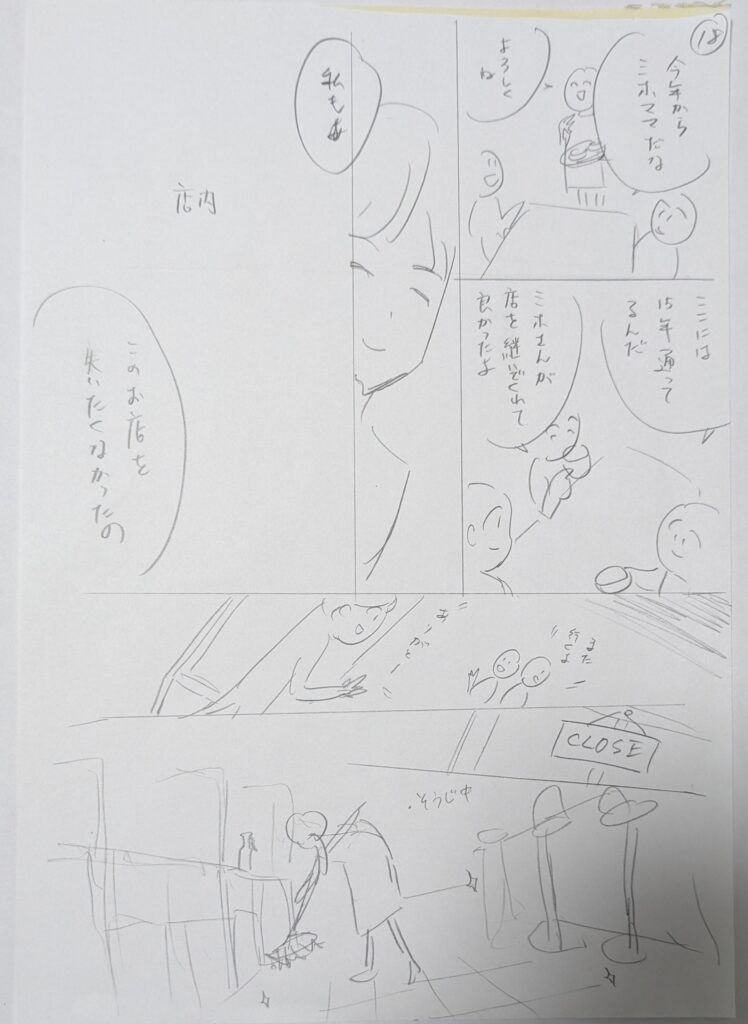 18
今年から
ミホママだな
よろしく
ね
ここには
15年通って
るんだ
ミホさんが
店を継いでくれて
良かったよ
私も
店内
このお店を
失いたくなかったの
また
行くよ
あーがとー
CLOSE
・そうじ中